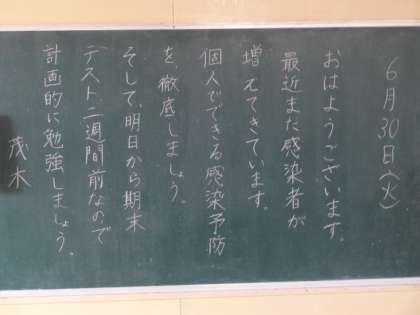 6月30日(火)
おはようございます。
最近また感染者が
増えてきています。
個人でできる感染予防
を、徹底しましょう。
そして、明日から期末
テスト二週間前なので
計画的に勉強しましょう。
茂木